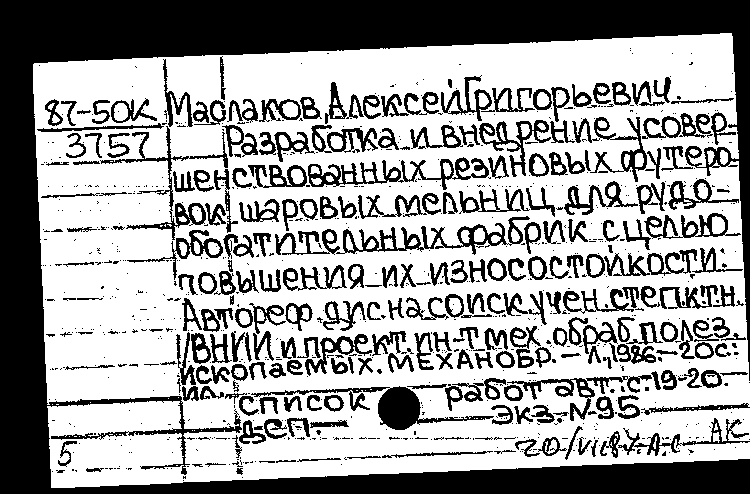 87-50К Маслаков, Алексей Григорьевич.
3757 Разработка и внедрение усовер-
шенствованных резиновых футеро-
вок шаровых мельниц для рудо-
обогатительных фабрик с целью
повышения их износостойкости:
Автореф. дис. на соиск. учен. степ. к.т.н.
/ВНИИ и проект. ин-т мех. обраб. полез.
ископаемых. МЕХАНОБР. – Л., 1986. – 20 с:
ил.
список работ авт.: с. 19-20.
ДСП. Экз. N 95.
5 АК